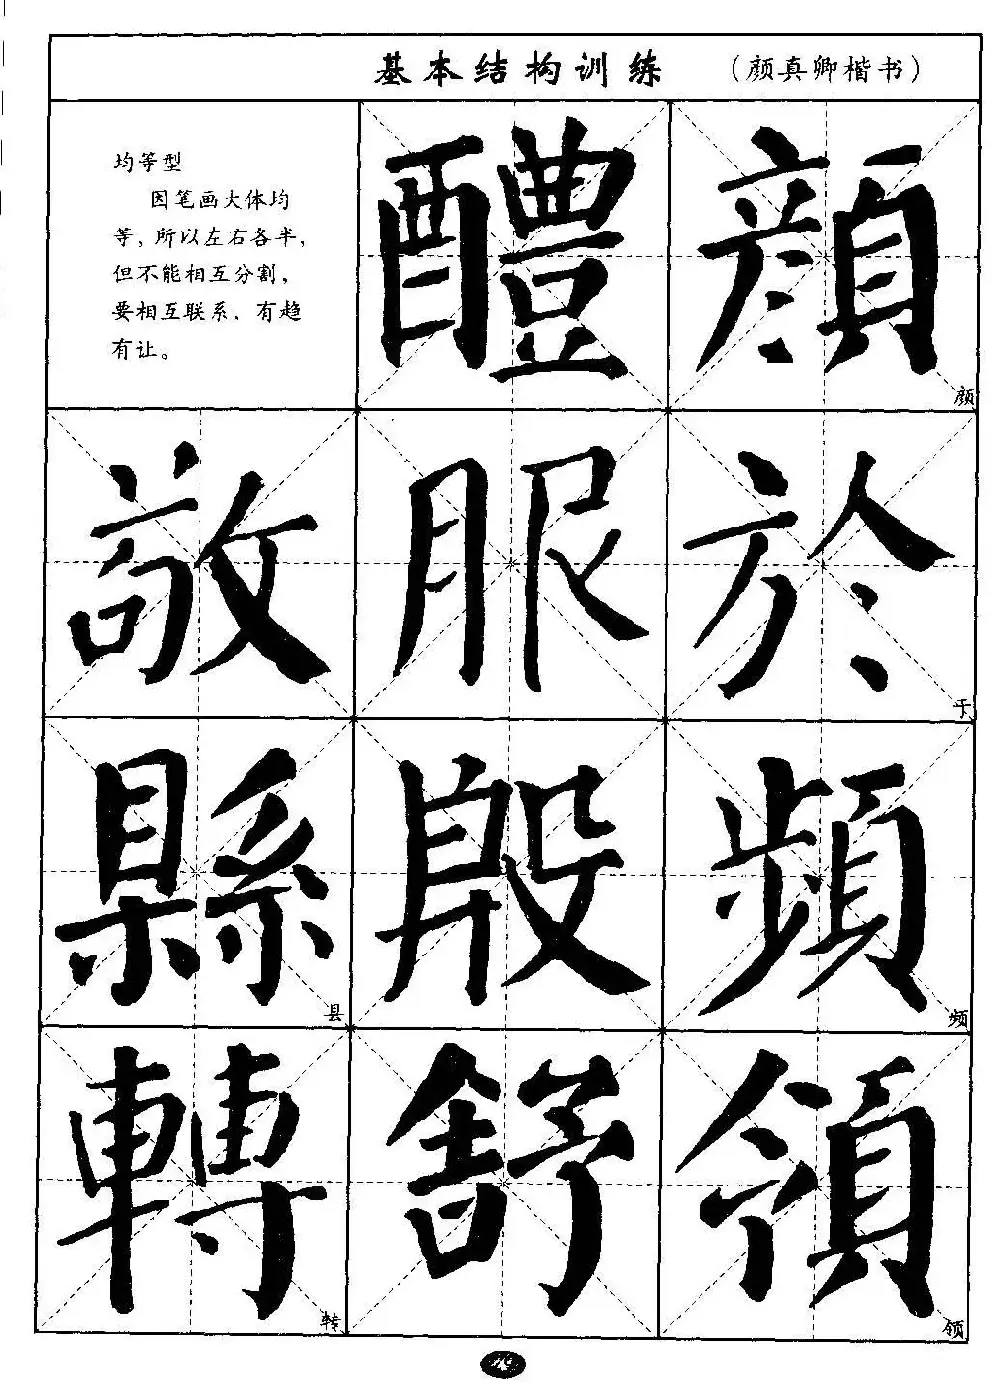 基本结构训练 (颜真卿楷书)
均等型
因笔画大体均
等，所以左右各半，
但不能相互分割，
要相互联系，有趋
有让。
醴 顔
颜
敬 服 於
于
縣 殷 頻
县 频
轉 舒 領
转 领